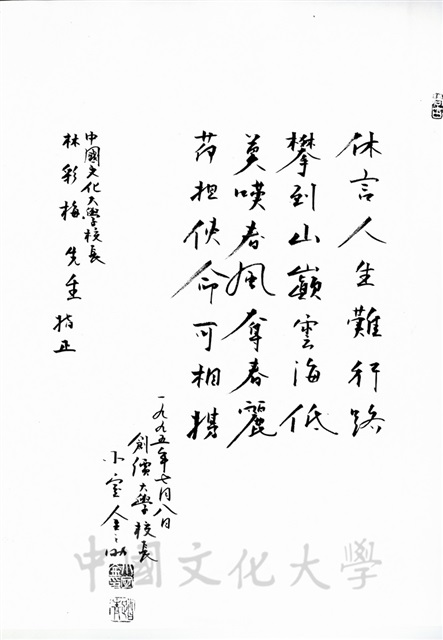 休言人生難行路
攀到山巔雲海低
莫嘆春風奪春麗
荷担使命可相携
中國文化大學校長
林彩梅 先生 指正
一九九五年七月八日
創價大學校長
小室金之助
中國文化大學